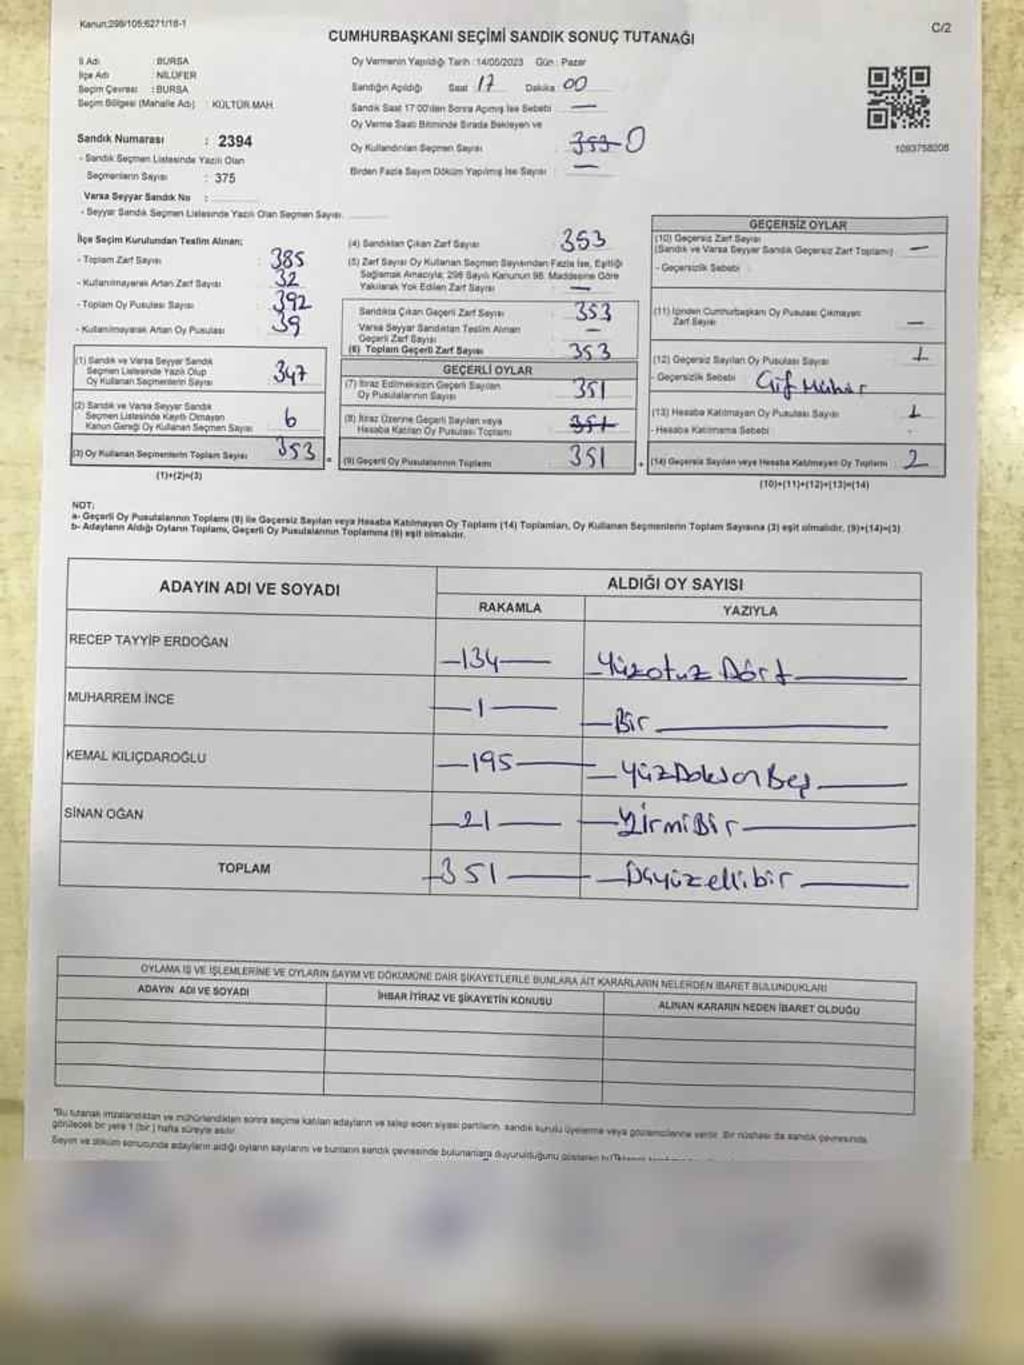 Kanun:298/105;6271/18-1
C/2
CUMHURBAŞKANI SEÇİMİ SANDIK SONUÇ TUTANAĞI
İl Adı : BURSA
İlçe Adı : NİLÜFER
Seçim Çevresi : BURSA
Seçim Bölgesi (Mahalle Adı) : KÜLTÜR MAH.
Sandık Numarası : 2394
- Sandık Seçmen Listesinde Yazılı Olan
Seçmenlerin Sayısı : 375
Varsa Seyyar Sandık No :
- Seyyar Sandık Seçmen Listesinde Yazılı Olan Seçmen Sayısı
Oy Vermenin Yapıldığı Tarih : 14/05/2023 Gün : Pazar
Sandığın Açıldığı Saat 17 Dakika 00
Sandık Saat 17:00'den Sonra Açılmış İse Sebebi —
Oy Verme Saati Bitiminde Sırada Bekleyen ve
Oy Kullandırılan Seçmen Sayısı 353 0
Birden Fazla Sayım Döküm Yapılmış İse Sayısı —
1093758208
İlçe Seçim Kurulundan Teslim Alınan;
- Toplam Zarf Sayısı : 385
- Kullanılmayarak Artan Zarf Sayısı : 32
- Toplam Oy Pusulası Sayısı : 392
- Kullanılmayarak Artan Oy Pusulası : 39
(1) Sandık ve Varsa Seyyar Sandık
Seçmen Listesinde Yazılı Olup
Oy Kullanan Seçmenlerin Sayısı : 347
(2) Sandık ve Varsa Seyyar Sandık
Seçmen Listesinde Kayıtlı Olmayan
Kanun Gereği Oy Kullanan Seçmen Sayısı : 6
(3) Oy Kullanan Seçmenlerin Toplam Sayısı : 353
(1)+(2)=(3)
(4) Sandıktan Çıkan Zarf Sayısı 353
(5) Zarf Sayısı Oy Kullanan Seçmen Sayısından Fazla İse, Eşitliği
Sağlamak Amacıyla; 298 Sayılı Kanunun 98. Maddesine Göre
Yakılarak Yok Edilen Zarf Sayısı —
Sandıkta Çıkan Geçerli Zarf Sayısı 353
Varsa Seyyar Sandıktan Teslim Alınan
Geçerli Zarf Sayısı —
(6) Toplam Geçerli Zarf Sayısı 353
GEÇERLİ OYLAR
(7) İtiraz Edilmeksizin Geçerli Sayılan
Oy Pusulalarının Sayısı 351
(8) İtiraz Üzerine Geçerli Sayılan veya
Hesaba Katılan Oy Pusulası Toplamı 351
(9) Geçerli Oy Pusulalarının Toplamı 351
GEÇERSİZ OYLAR
(10) Geçersiz Zarf Sayısı
(Sandık ve Varsa Seyyar Sandık Geçersiz Zarf Toplamı) —
- Geçersizlik Sebebi :
(11) İçinden Cumhurbaşkanı Oy Pusulası Çıkmayan
Zarf Sayısı —
(12) Geçersiz Sayılan Oy Pusulası Sayısı 1
- Geçersizlik Sebebi Çift Mühür
(13) Hesaba Katılmayan Oy Pusulası Sayısı 1
- Hesaba Katılmama Sebebi
(14) Geçersiz Sayılan veya Hesaba Katılmayan Oy Toplamı 2
(10)+(11)+(12)+(13)=(14)
NOT:
a- Geçerli Oy Pusulalarının Toplamı (9) ile Geçersiz Sayılan veya Hesaba Katılmayan Oy Toplamı (14) Toplamları, Oy Kullanan Seçmenlerin Toplam Sayısına (3) eşit olmalıdır. (9)+(14)=(3)
b- Adayların Aldığı Oyların Toplamı, Geçerli Oy Pusulalarının Toplamına (9) eşit olmalıdır.
ADAYIN ADI VE SOYADI
ALDIĞI OY SAYISI
RAKAMLA YAZIYLA
RECEP TAYYİP ERDOĞAN —134— Yüzotuz Dört
MUHARREM İNCE —1— —Bir
KEMAL KILIÇDAROĞLU —195— —YüzDoksan Beş
SİNAN OĞAN —21— —YirmiBir—
TOPLAM —351— —Üçyüzellibir—
OYLAMA İŞ VE İŞLEMLERİNE VE OYLARIN SAYIM VE DÖKÜMÜNE DAİR ŞİKAYETLERLE BUNLARA AİT KARARLARIN NELERDEN İBARET BULUNDUKLARI
ADAYIN ADI VE SOYADI İHBAR İTİRAZ VE ŞİKAYETİN KONUSU ALINAN KARARIN NEDEN İBARET OLDUĞU
"Bu tutanak imzalandıktan ve mühürlendikten sonra seçime katılan adayların ve talep eden siyasi partilerin, sandık kurulu üyelerine veya gözlemcilerine verilir. Bir nüshası da sandık çevresinde
görülecek bir yere 1 (bir) hafta süreyle asılır.
Seçim ve döküm sonucunda adayların aldığı oyların sayılarını ve bunların sandık çevresinde bulunanlara duyurulduğunu gösteren